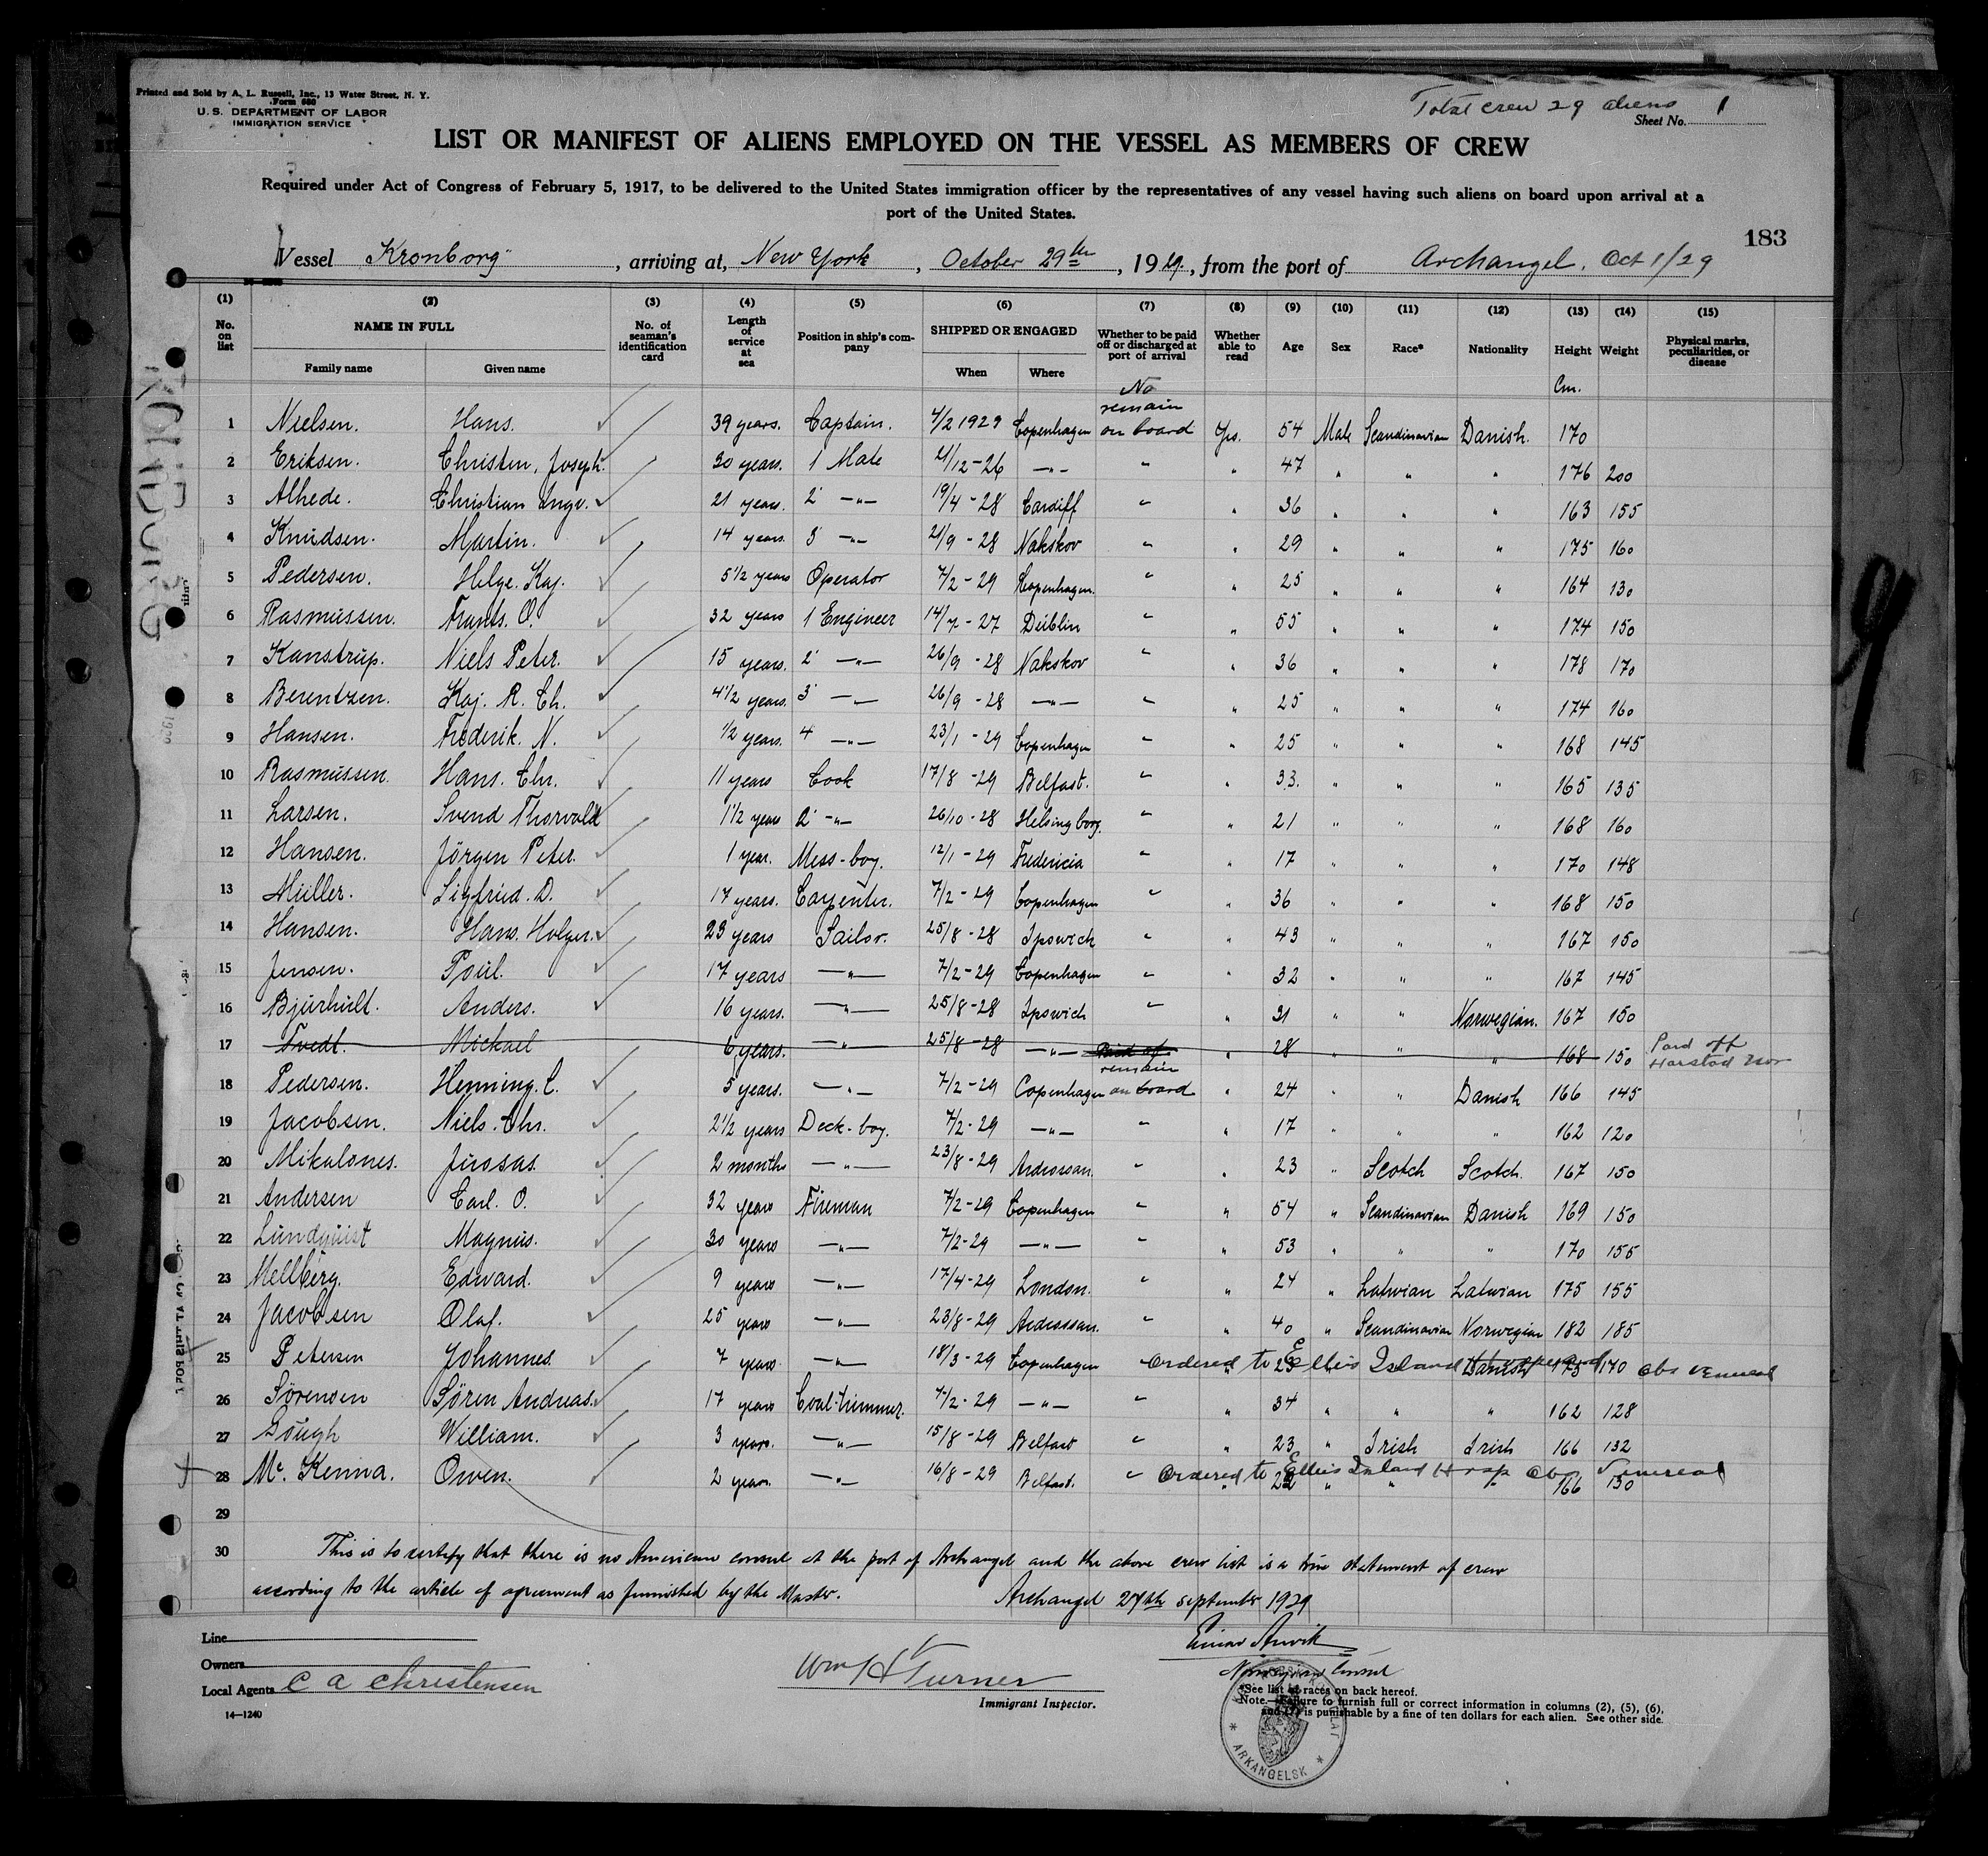 Printed and Sold by A. L. Russell, Inc., 13 Water Street, N. Y.
Form 680
U. S. DEPARTMENT OF LABOR
IMMIGRATION SERVICE
Total crew 29 aliens
Sheet No. 1
LIST OR MANIFEST OF ALIENS EMPLOYED ON THE VESSEL AS MEMBERS OF CREW
Required under Act of Congress of February 5, 1917, to be delivered to the United States immigration officer by the representatives of any vessel having such aliens on board upon arrival at a
port of the United States.
183
Vessel Kronborg, arriving at, New York, October 29th, 1929, from the port of Archangel. Oct 1/29
(1) (2) (3) (4) (5) (6) (7) (8) (9) (10) (11) (12) (13) (14) (15)
No. on list NAME IN FULL Family name Given name No. of seaman's identification card Length of service at sea Position in ship's company SHIPPED OR ENGAGED When Where Whether to be paid off or discharged at port of arrival Whether able to read Age Sex Race* Nationality Height Weight Physical marks, peculiarities, or disease
No remain Cm.
1 Nielsen. Hans. 39 years. Captain. 4/2 1929 Copenhagen on board Yes. 54 Male Scandinavian Danish. 170
2 Eriksen. Christen, Joseph. 30 years. 1 Mate 21/12-26 -"- " " 47 " " " 176 200
3 Alhede. Christian Ingv. 21 years. 2' -"- 19/4-28 Cardiff " " 36 " " " 163 155
4 Knudsen. Martin. 14 years. 3' -"- 21/9-28 Nakskov " " 29 " " " 175 160
5 Pedersen. Helge. Kaj. 5 1/2 years Operator 7/2-29 Copenhagen. " " 25 " " " 164 130
6 Rasmussen. Frants. O. 32 years 1 Engineer 14/7-27 Dublin " " 55 " " " 174 150
7 Kanstrup. Niels Peter. 15 years. 2' -"- 26/9-28 Nakskov " " 36 " " " 178 170
8 Berentzen. Kaj. R. Ch. 4 1/2 years. 3' -"- 26/9-28 -"- " " 25 " " " 174 160
9 Hansen. Frederik. N. 1/2 years. 4 -"- 23/1-29 Copenhagen " " 25 " " " 168 145
10 Rasmussen Hans. Chr. 11 years Cook 17/8-29 Belfast. " " 33. " " " 165 135
11 Larsen. Svend Thorvald 1 1/2 years 2' -"- 26/10-28 Helsingborg. " " 21 " " " 168 160
12 Hansen. Jörgen Peter. 1 year. Mess-boy. 12/1-29 Fredericia " " 17 " " " 170 148
13 Müller. Sigfried. D. 17 years. Carpenter. 7/2-29 Copenhagen " " 36 " " " 168 150
14 Hansen. Hans. Holger. 23 years Sailor. 25/8-28 Ipswich " " 43 " " " 167 150
15 Jensen. Poul. 17 years -"- 7/2-29 Copenhagen " " 32 " " " 167 145
16 Bjurhult. Anders. 16 years. -"- 25/8-28 Ipswich " " 31 " " Norwegian. 167 150
17 Tvedt. Mickael 6 years. -"- 25/8-28 -"- Paid off " 28 " " " 168 150 Paid off Harstad Nor
18 Pedersen. Henning. C. 5 years. -"- 7/2-29 Copenhagen remain on board " 24 " " Danish 166 145
19 Jacobsen. Niels. Chr. 2 1/2 years Deck-boy. 7/2-29 -"- " " 17 " " " 162 120
20 Mikalones. Juosas. 2 months -"- 23/8-29 Ardrossan. " " 23 " Scotch Scotch. 167 150
21 Andersen Carl. O. 32 years Fireman 7/2-29 Copenhagen " " 54 " Scandinavian Danish 169 150
22 Lundquist Magnus. 30 years -"- 7/2-29 -"- " " 53 " " " 170 155
23 Mellberg. Edward. 9 years -"- 17/4-29 London. " " 24 " Latvian Latvian 175 155
24 Jacobsen Olaf. 25 years -"- 23/8-29 Ardrossan. " " 40 " Scandinavian Norwegian 182 185
25 Petersen Johannes. 7 years -"- 18/3-29 Copenhagen " Ordered to Ellis Island Danish 175 170 obs venereal
26 Sørensen Søren Andreas. 17 years Coal-trimmer. 7/2-29 -"- " " 34 " " " 162 128
27 Gough William. 3 years. -"- 15/8-29 Belfast " " 23 " Irish Irish 166 132
28 Mc. Kenna. Owen. 2 years. -"- 16/8-29 Belfast. " Ordered to Ellis Island Hosp obs Venereal 22 " " " 166 130
29
30 This is to certify that there is no American consul at the port of Archangel and the above crew list is a true statement of crew
according to the article of agreement as furnished by the Master. Archangel 27th september 1929
Line
Owners
Local Agents C A Christensen
14—1240
Wm H Turner
Immigrant Inspector.
Norwegian Consul
*See list of races on back hereof.
Note.—Failure to furnish full or correct information in columns (2), (5), (6),
and (7) is punishable by a fine of ten dollars for each alien. See other side.
ARKANGELSK
KRONBORG